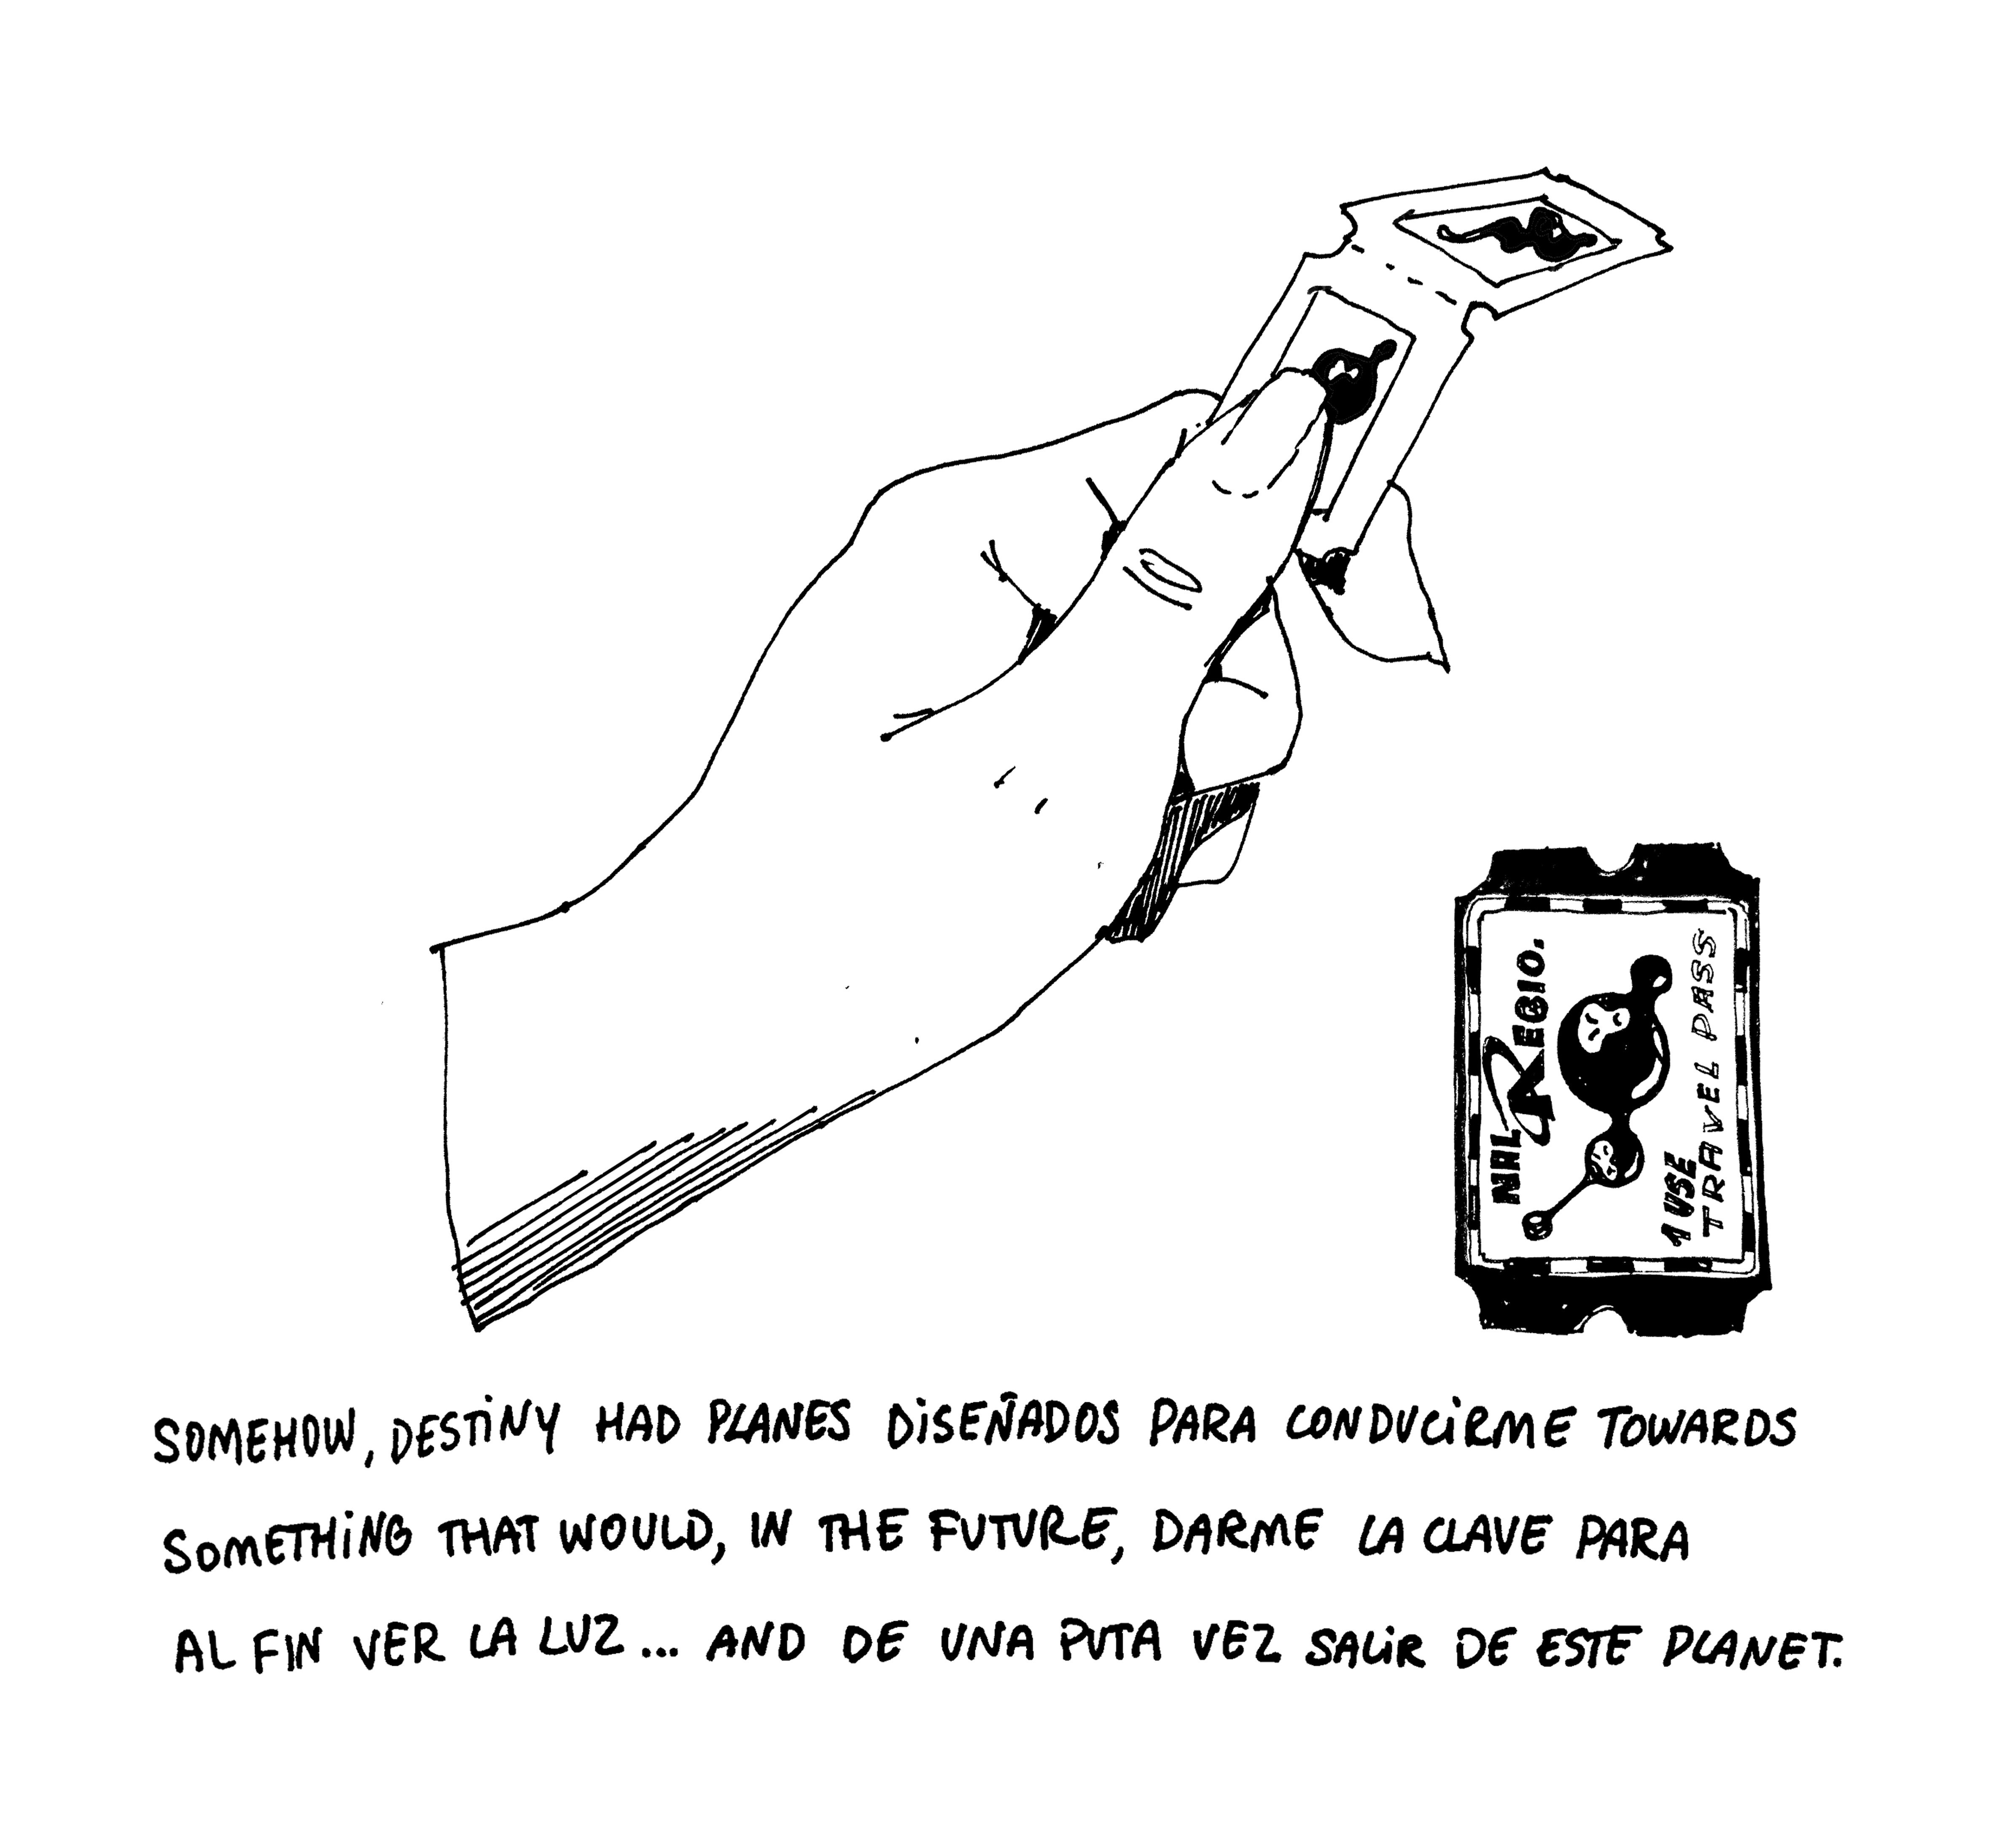 NAL REGIO.
1 USE
TRAVEL PASS
SOMEHOW, DESTINY HAD PLANES DISEÑADOS PARA CONDUCIRME TOWARDS
SOMETHING THAT WOULD, IN THE FUTURE, DARME LA CLAVE PARA
AL FIN VER LA LUZ... AND DE UNA PUTA VEZ SALIR DE ESTE PLANET.